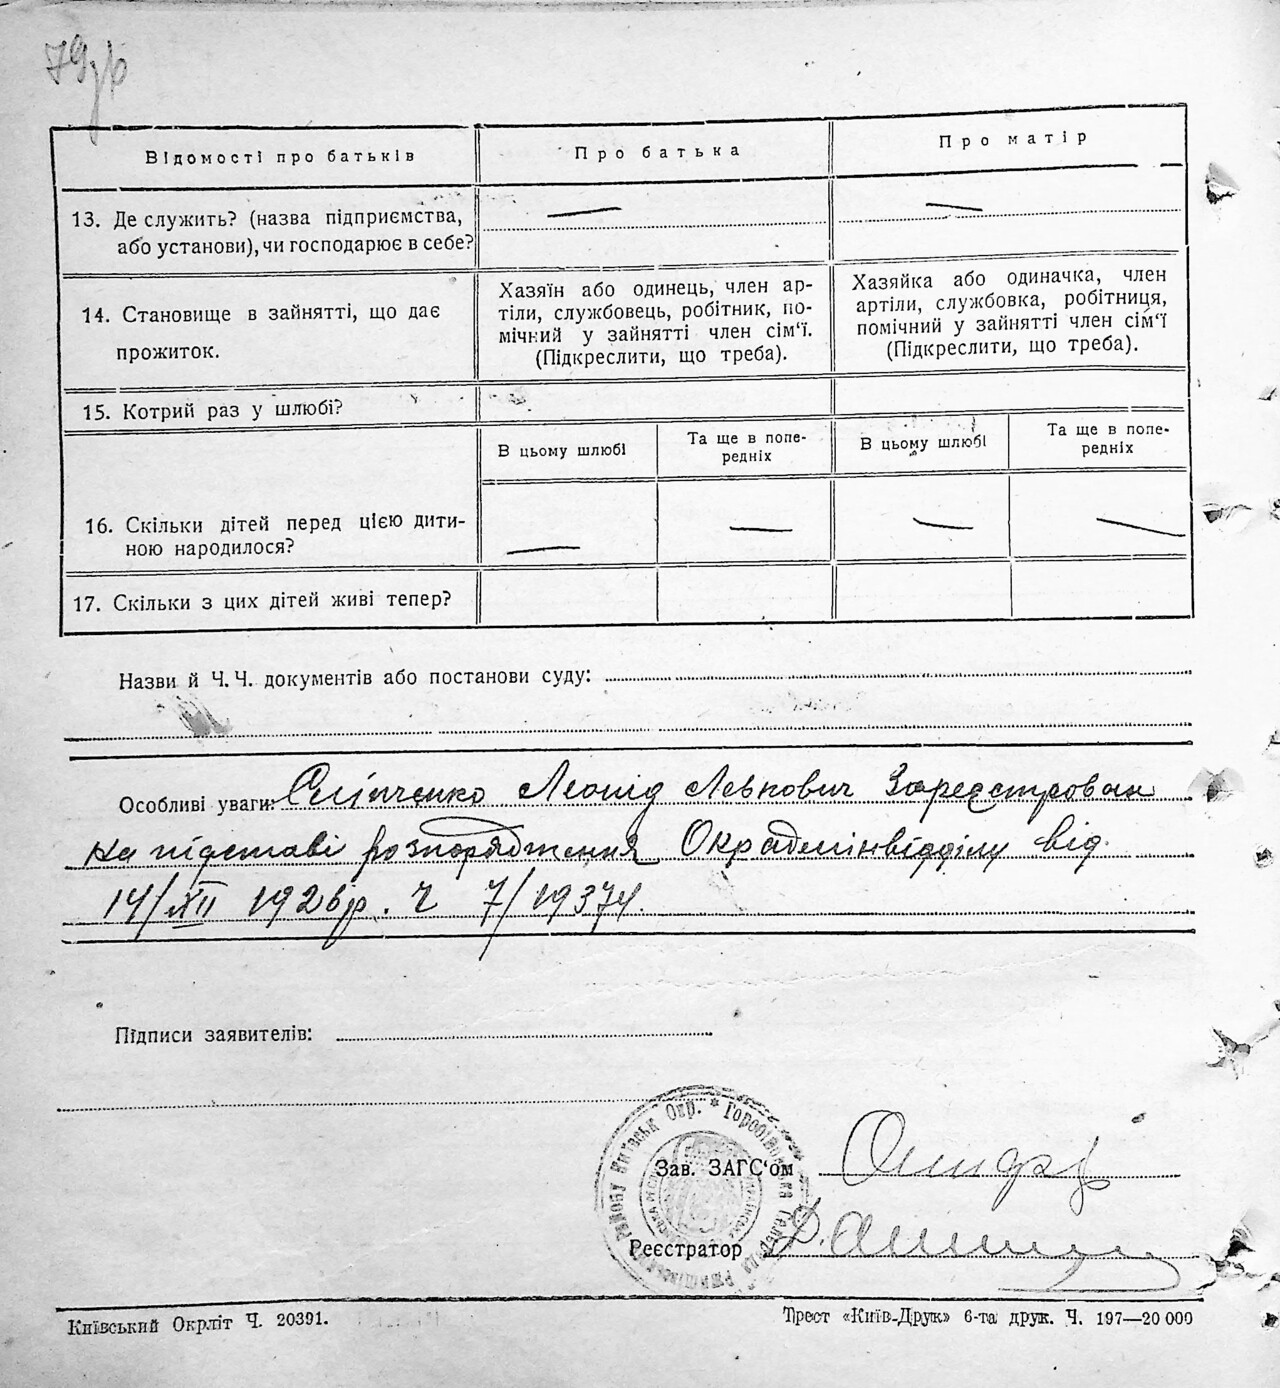 79
Відомості про батьків
Про батька
Про матір
13. Де служить? (назва підприємства,
або установи), чи господарює в себе?
14. Становище в зайнятті, що дає
прожиток.
Хазяїн або одинець, член ар-
тіли, службовець, робітник, по-
мічний у зайнятті член сім'ї.
(Підкреслити, що треба).
Хазяйка або одиначка, член
артіли, службовка, робітниця,
помічний у зайнятті член сім'ї
(Підкреслити, що треба).
15. Котрий раз у шлюбі?
В цьому шлюбі
Та ще в попе-
редніх
В цьому шлюбі
Та ще в попе-
редніх
16. Скільки дітей перед цією дити-
ною народилося?
17. Скільки з цих дітей живі тепер?
Назви й Ч.Ч. документів або постанови суду:
Особливі уваги: Леонід Левкович Зареєстрован
на підставі розпорядження Окрадмінвідділу від
14/XII 1926 р. Ч 7/19374.
Підписи заявителів:
Київськ Окр. * Горобіївська
Зав. ЗАГС'ом
Реєстратор
Київський Окрліт Ч. 20391.
Трест «Київ-Друк» 6-та друк. Ч. 197—20 000